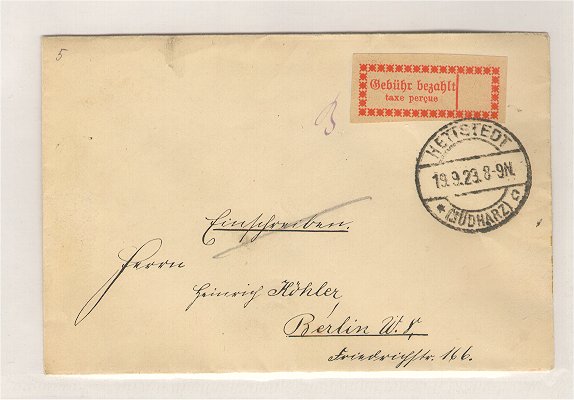 5
Gebühr bezahlt
taxe perçue
HETTSTEDT
19.9.23.8-9N.
* (SÜDHARZ) c
Einschreiben.
Herrn
Heinrich Köhler,
Berlin W. 8,
Friedrichstr. 166.